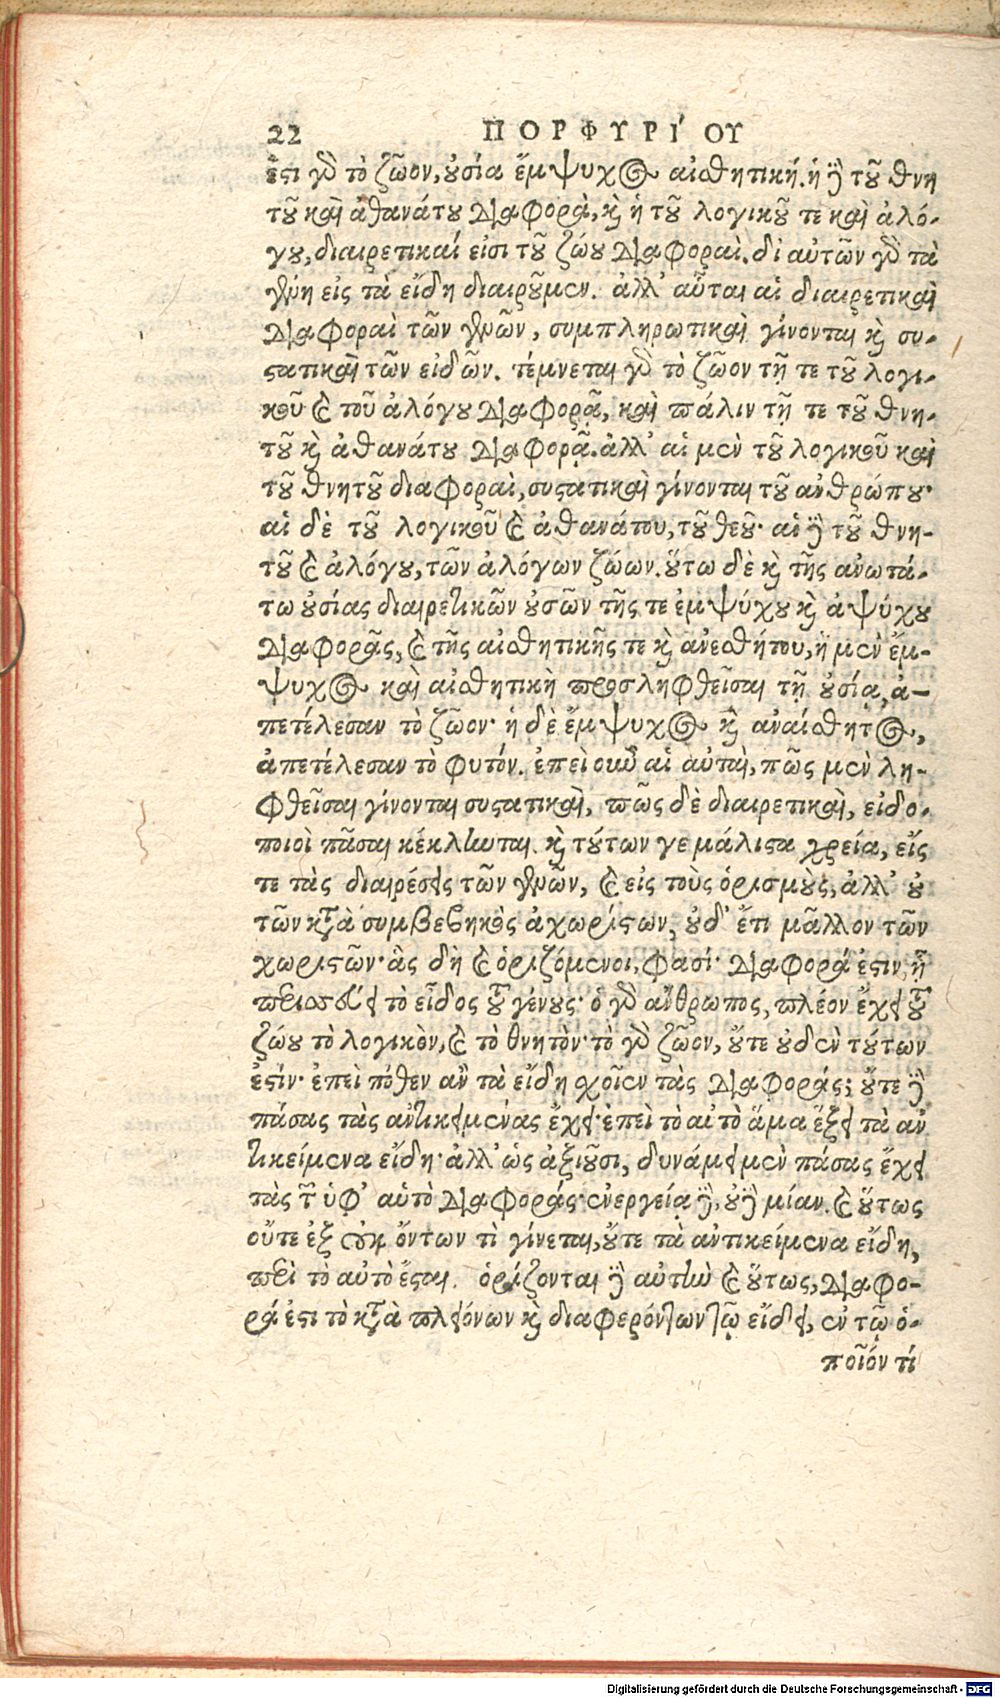 22 ΠΟΡΦΥΡΙ´ΟΥ
ἐστι γὸ τὸ ζῶον, οὐσία ἔμψυχος αἰσθητική. ἡ δὲ τοῦ θνη
τοῦ καὶ ἀθανάτου διαφορὰ, καὶ ἡ τοῦ λογικοῦ τε καὶ ἀλό-
γου, διαιρετικαί εἰσι τοῦ ζώου διαφοραὶ. δι αὐτῶν γὸ τὰ
γένη εἰς τὰ εἴδη διαιροῦμεν. ἀλλ' αὗται αἱ διαιρετικαὶ
διαφοραὶ τῶν γενῶν, συμπληρωτικαὶ γίνονται καὶ συ-
στατικαὶ τῶν εἰδῶν. τέμνεται γὸ τὸ ζῶον τῇ τε τοῦ λογι-
κοῦ καὶ τοῦ ἀλόγου διαφορᾷ, καὶ πάλιν τῇ τε τοῦ θνη-
τοῦ καὶ ἀθανάτου διαφορᾷ. ἀλλ' αἱ μεν τοῦ λογικοῦ καὶ
τοῦ θνητοῦ διαφοραὶ, συστατικαὶ γίνονται τοῦ ανθρώπου·
αἱ δὲ τοῦ λογικοῦ καὶ ἀθανάτου, τοῦ θεοῦ· αἱ δὲ τοῦ θνη-
τοῦ καὶ ἀλόγου, τῶν ἀλόγων ζώων. οὕτω δὲ καὶ τῆς ανωτά-
τω οὐσίας διαιρετικῶν οὐσῶν τῆς τε ἐμψύχου καὶ ἀψύχου
διαφορᾶς, καὶ τῆς αἰσθητικῆς τε καὶ ανεσθήτου, ἡ μεν ἔμ-
ψυχος καὶ αἰσθητικὴ προσληφθεῖσαι τῇ οὐσίᾳ, ἀ-
πετέλεσαν τὸ ζῶον· ἡ δὲ ἔμψυχος καὶ αναίσθητος,
ἀπετέλεσαν τὸ φυτόν. ἐπεὶ οὖν αἱ αὐταὶ, πῶς μεν λη-
φθεῖσαι γίνονται συστατικαὶ, πῶς δὲ διαιρετικαὶ, εἰδο-
ποιοὶ πᾶσαι κέκληνται. καὶ τούτων γε μάλιστα χρεία, εἴς
τε τὰς διαιρέσεις τῶν γενῶν, καὶ εἰς τοὺς ὁρισμοὺς, ἀλλ' οὐ
τῶν κατὰ συμβεβηκὸς ἀχωρίστων, οὐδ' ἔτι μᾶλλον τῶν
χωριστῶν· ἃς δὴ καὶ ὁριζόμενοι, φασί· διαφορά ἐστιν, ᾗ
περισσεύει τὸ εἶδος τοῦ γένους· ὁ γὸ ανθρωπος, πλέον ἔχει τοῦ
ζώου τὸ λογικὸν, καὶ τὸ θνητὸν· τὸ γὸ ζῶον, οὔτε οὐδεν τούτων
ἐστίν· ἐπεὶ πόθεν αν τὰ εἴδη σχοῖεν τὰς διαφοράς; οὔτε δὲ
πάσας τὰς αντικειμενας ἔχει· ἐπεὶ τὸ αὐτὸ ἅμα ἕξει τὰ αν
τικείμενα εἴδη· ἀλλ' ὡς ἀξιοῦσι, δυνάμει μεν πάσας ἔχει
τὰς τῶν ὑφ' αὑτὸ διαφοράς· ενεργείᾳ δὲ, οὐδὲ μίαν. καὶ οὕτως
οὔτε ἐξ οὐκ ὄντων τὶ γίνεται, οὔτε τὰ αντικείμενα εἴδη,
περὶ τὸ αὐτὸ ἔσται. ὁρίζονται δὲ αὐτὴν καὶ οὕτως, διαφο-
ρά ἐστι τὸ κατὰ πλειόνων καὶ διαφερόντων τῷ εἴδει, εν τῷ ὁ-
ποῖόν τί
Digitalisierung gefördert durch die Deutsche Forschungsgemeinschaft - DFG